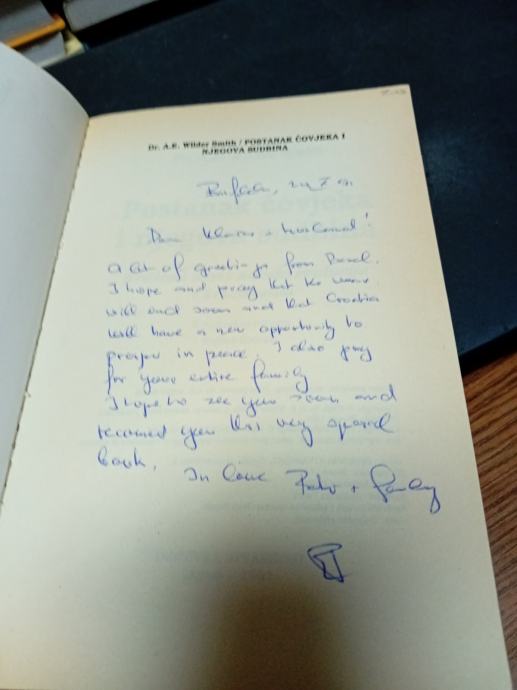 Dr. A.E. Wilder Smith / POSTANAK ČOVJEKA I
NJEGOVA SUDBINA
Dear + husband!
A lot of greetings from
I hope and pray that the war
will end soon and that Croatia
will have a new opportunity to
prosper in peace. I also pray
for your entire family
I hope to see you soon and
you this very special
book.
In love + family